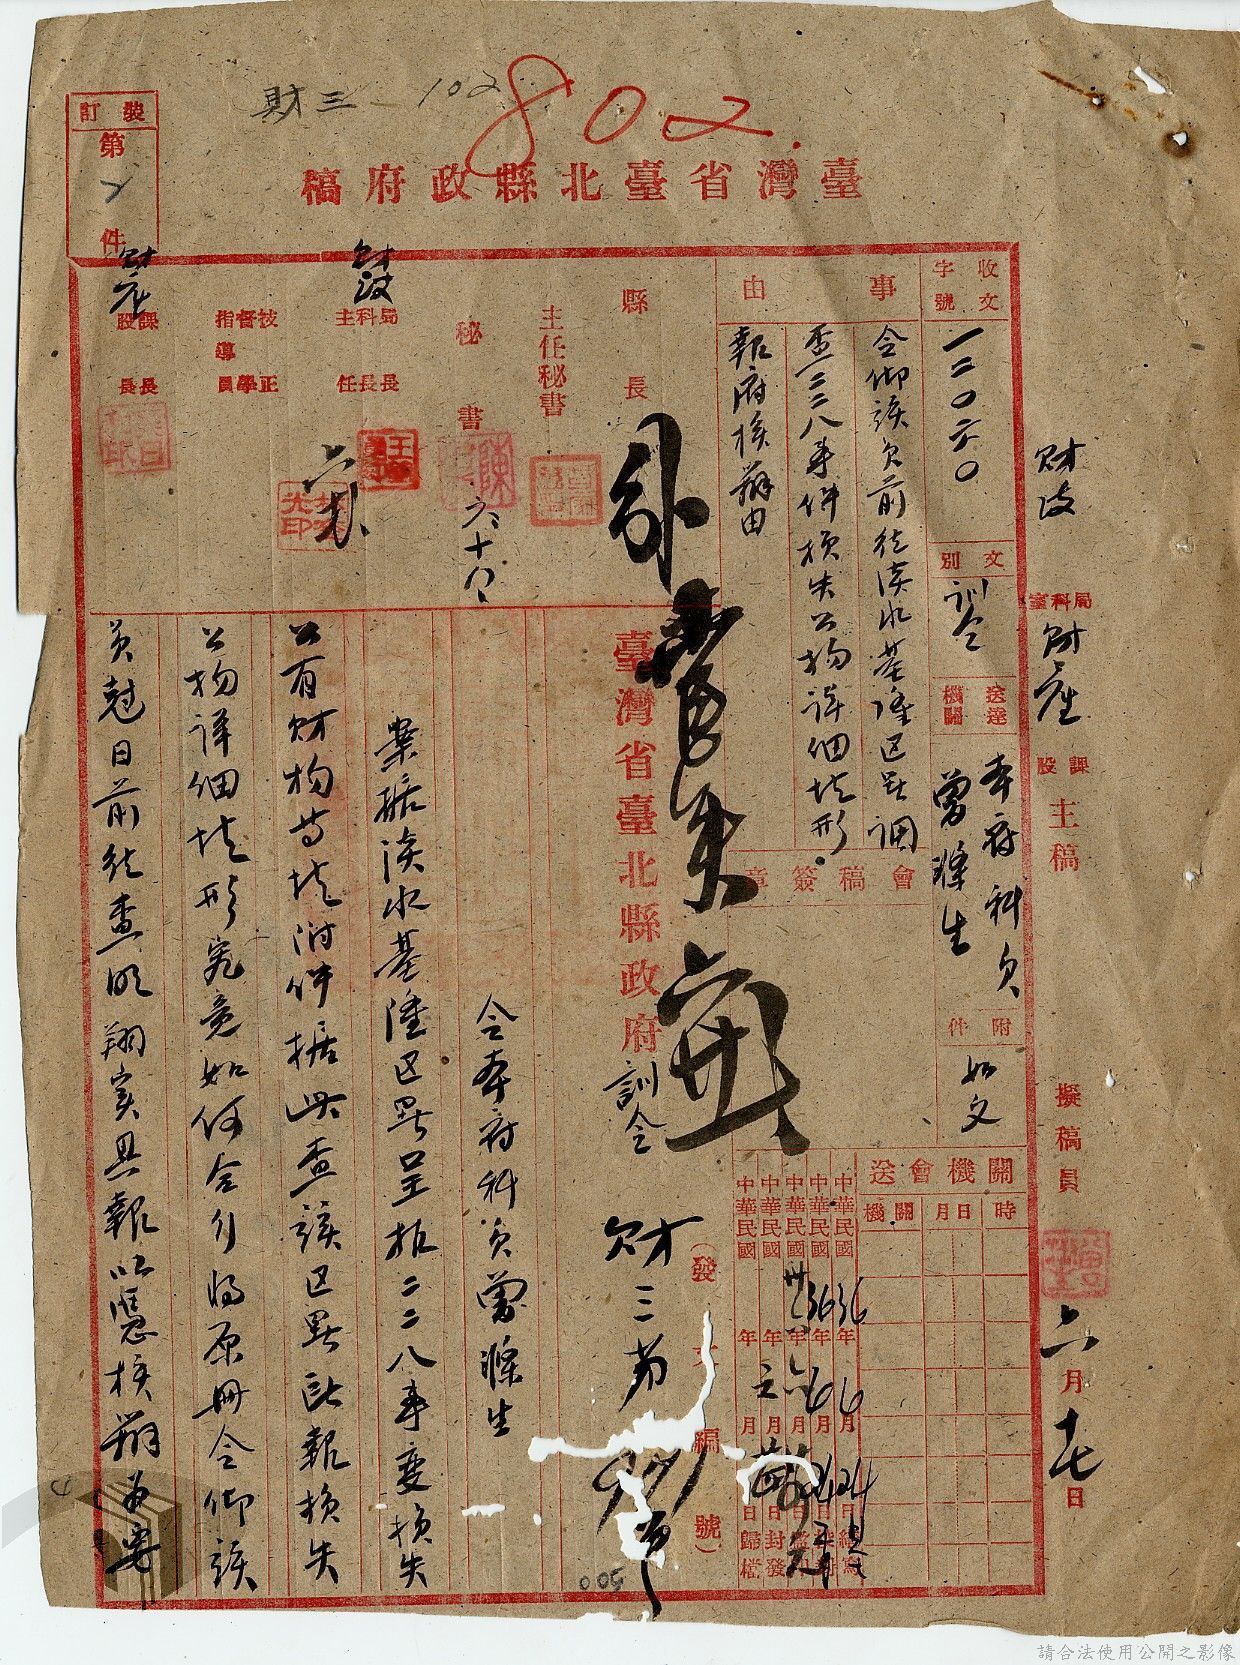 財三 102
802
臺灣省臺北縣政府稿
裝訂
第
2
件
收文
字號
一二〇六〇
文別
訓令
送達
機關
本府科員
曾滌生
附件
如文
事由
令仰該員前往淡水基隆区署调
查二二八事件損失公物詳細情形
報府核辦由
會稿簽章
縣長
主任秘書
秘書
六、十八
局科主
長長任
財政
技督指
導
正學員
課股
長長
財產
財政
局科室
財產
課股
主稿
擬稿員
六月十七日
關機會送
時
月日
關機
中華民國36年6月24日繕寫
中華民國36年6月24日校對
中華民國卅六年六月日監印
中華民國年月日封發
中華民國年月日歸檔
臺灣省臺北縣政府訓令
財三第
號
(發文編號)
令本府科員曾滌生
業據淡水基隆区署呈報二二八事変損失
公有財物等情附件據此查該区署所報損失
公物詳細情形究竟如何合行将原冊令仰該
員尅日前往查明翔實具報以憑核辦為要
005
請合法使用公開之影像